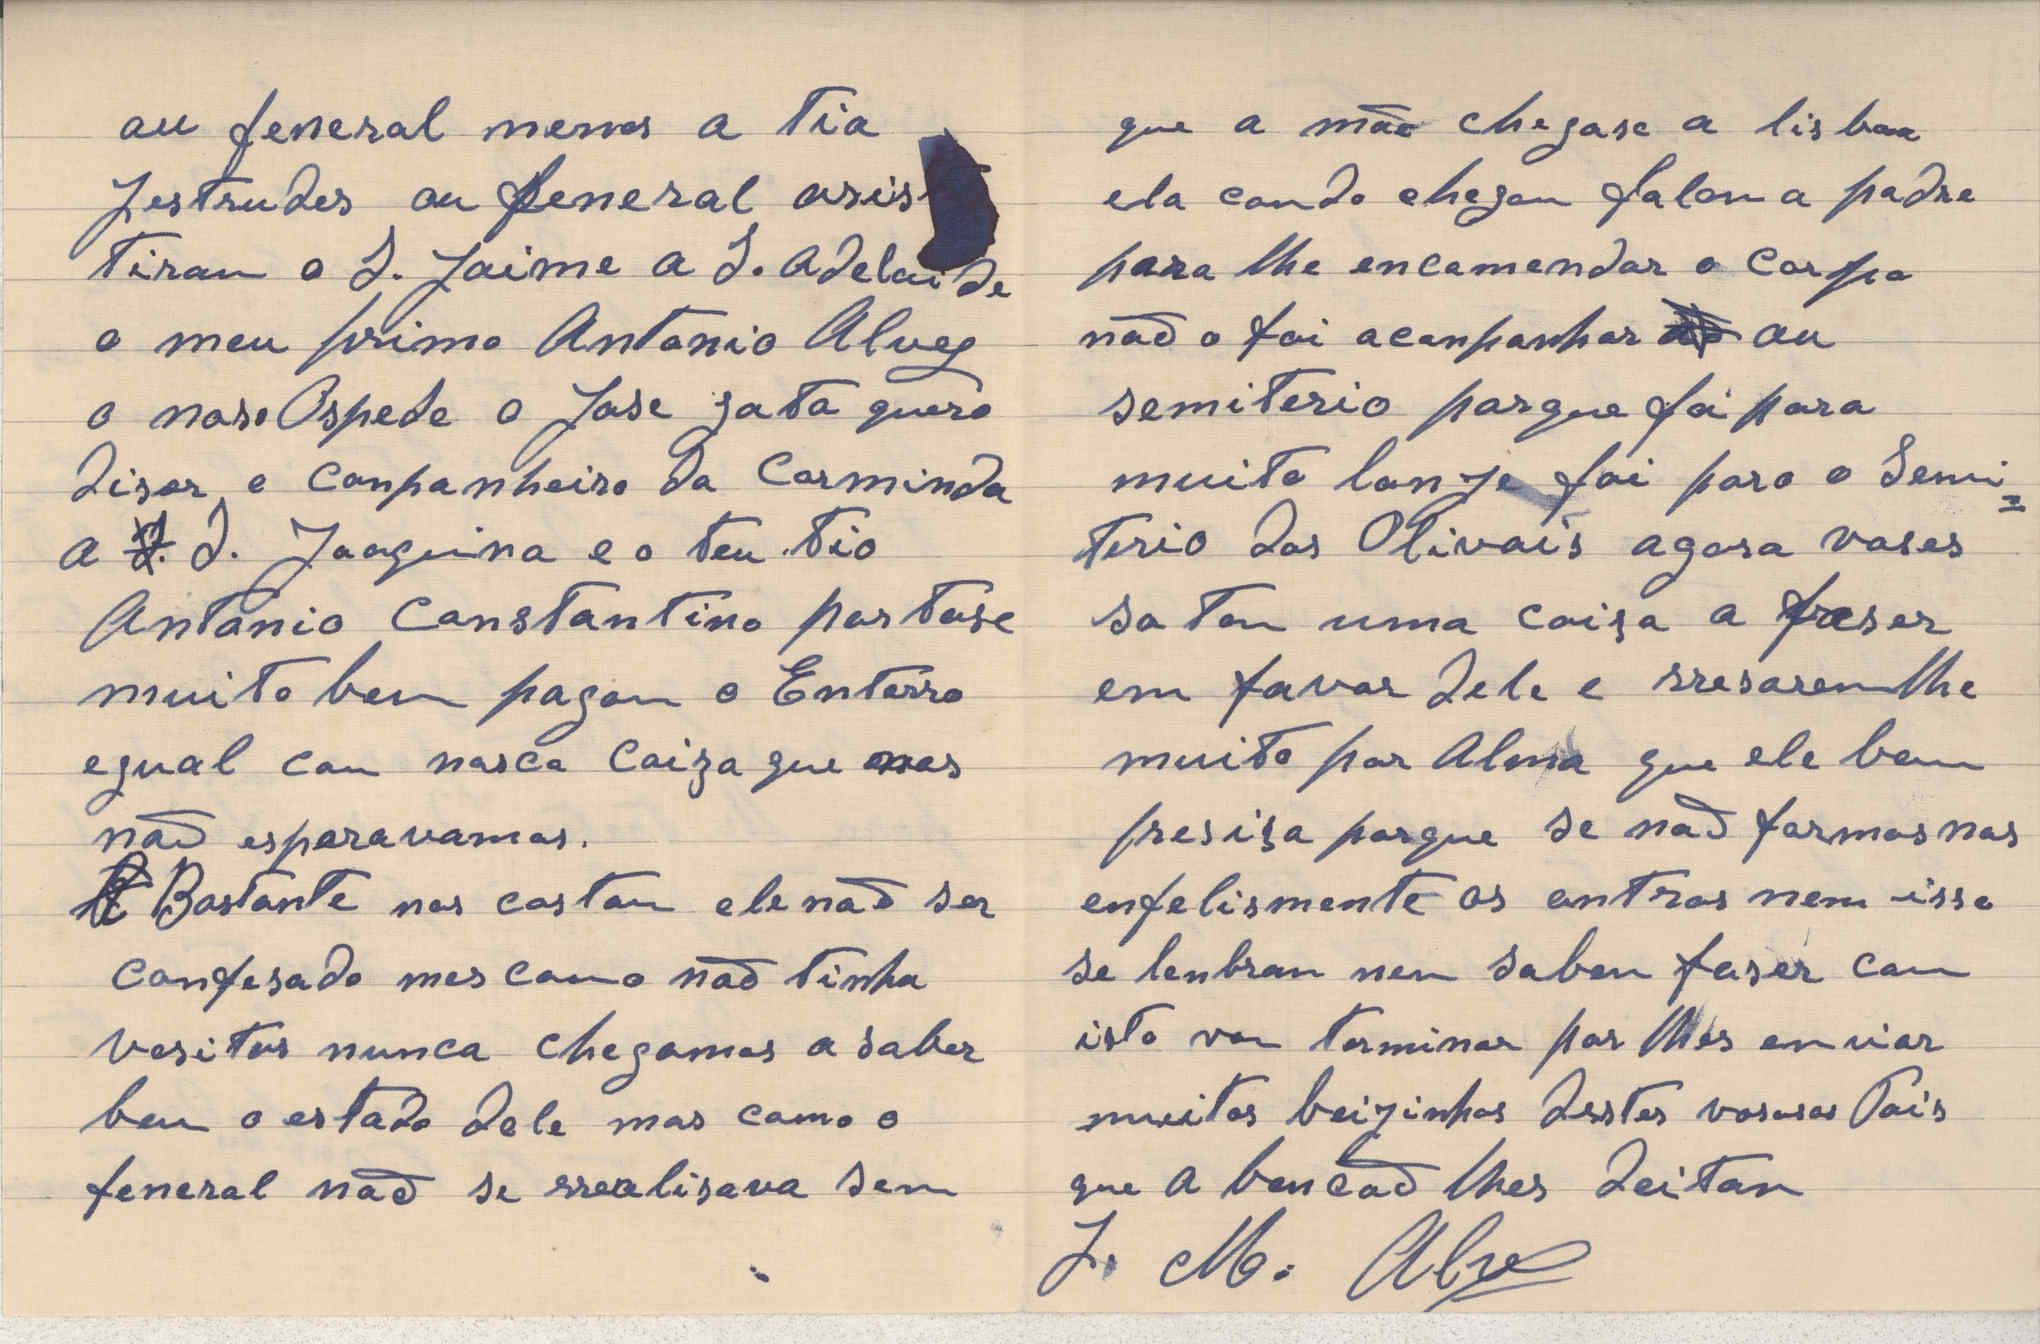 au feneral menos a tia
Jestrudes au feneral asis
tiran o S. Jaime a S. Adelaide
o meu primo Antonio Alves
o noso Ospede o Jose gato quero
diser o conpanheiro da Carminda
a D. Joaquina e o teu tio
Antonio Constantino portose
muito ben pagou o Enterro
egual con nosco Coiza que nos
não esparavamos.
Bastante nos costou ele não ser
Confesado mes como não tinha
vesitas nunca chegamos a saber
ben o estado dele mas como o
feneral não se rrealisava sem
que a mãe chegase a lisboa
ela condo chegou falou a padre
para lhe encomendar o Corpo
não o foi aconpanhar au
semiterio porque foi para
muito lonje foi para o Semi=
terio dos Olivais agora voses
so ten uma coiza a faser
em favor dele e rresaremlhe
muito por Alma que ele bem
presiza porque se não formos nos
enfelismente os outros nem isso
se lenbran nen saben faser con
isto vou terminar por lhes enviar
muitos beizinhos destes vososos Pais
que a bencão lhes deitan
J. M. Alves